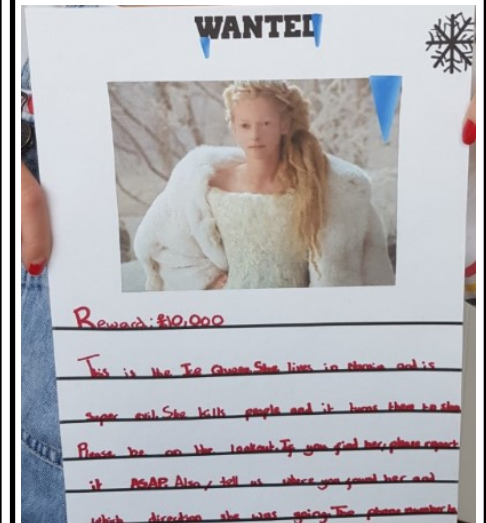 WANTED
Reward: £10,000
This is the Ice Queen. She lives in Narnia and is
super evil. She kills people and it turns them to
Please be on the lookout. If you find her, please report
it ASAP. Also, tell us where you found her and
which direction she was going. The phone number is